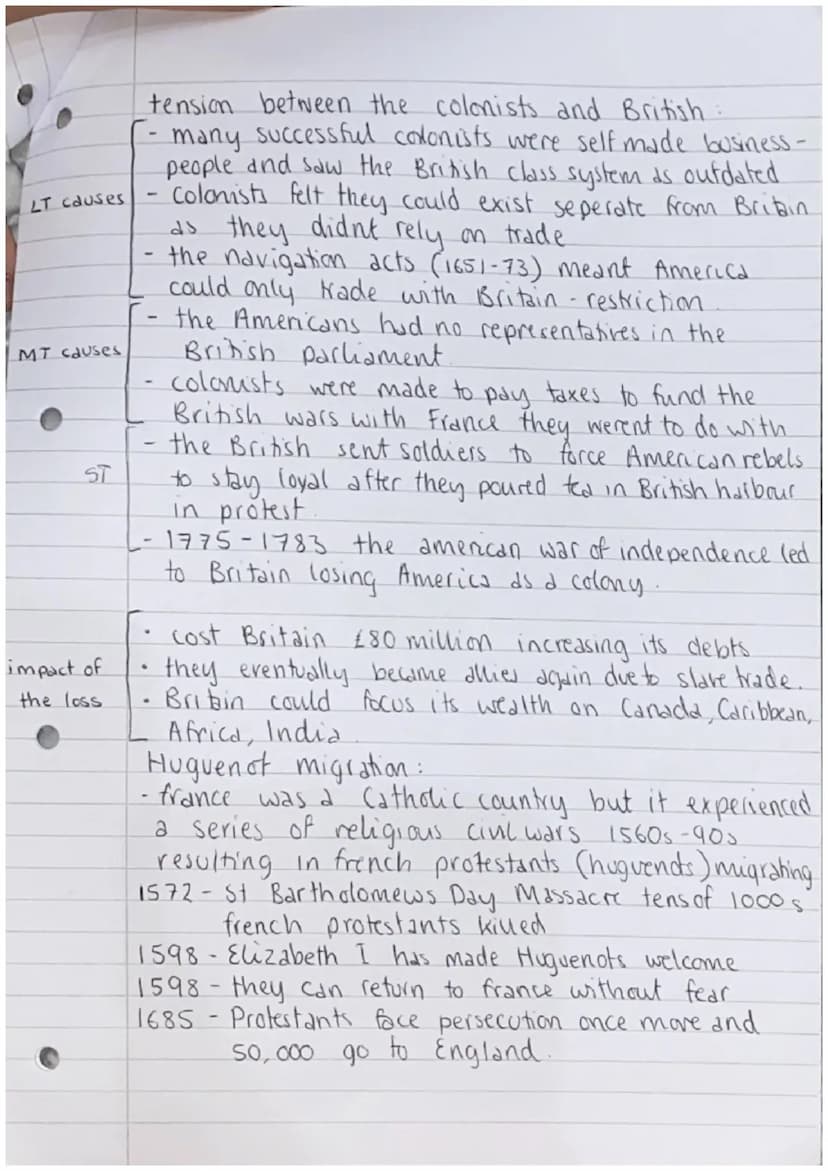 tension between the colonists and British :
- many successful colonists were self made business-
people and saw the British class system as outdated
LT causes - colonists felt they could exist seperate from Britain
as they didnt rely on trade
- the navigation acts (1651-73) meant America
could only trade with Britain - restriction
- the Americans had no representatives in the
MT causes British parliament
- colonists were made to pay taxes to fund the
British wars with France they werent to do with
- the British sent soldiers to force American rebels
ST to stay loyal after they poured tea in British harbour
in protest
- 1775-1783 the american war of independence led
to Britain losing America as a colony.
• cost Britain £80 million increasing its debts
impact of • they eventually became allies again due to slave trade.
the loss • Britain could focus its wealth on Canada, Caribbean,
Africa, India
Huguenot migration :
- france was a Catholic country but it experienced
a series of religious civil wars 1560s-90s
resulting in french protestants (huguenots) migrating
1572 - St Bartholomews Day Massacre tens of 1000s
french protestants killed
1598 - Elizabeth I has made Huguenots welcome
1598 - they can return to france without fear
1685 - Protestants face persecution once more and
50,000 go to England.